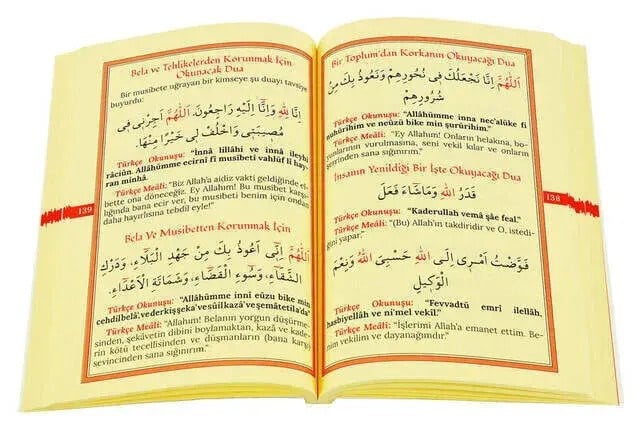 Bela ve Tehlikelerden Korunmak İçin
Okunacak Dua
Bir musibete uğrayan bir kimseye şu duayı tavsiye
buyurdu:
اِنَّا لِلّٰهِ وَاِنَّٓا اِلَيْهِ رَاجِعُونَ. اَللّٰهُمَّ اٰجِرْنِى فِى
مُصِيبَتِى وَاخْلُفْ لِى خَيْرًا مِنْهَا.
Türkçe Okunuşu: "İnnâ lillâhi ve innâ ileyhi
râciûn. Allâhümme ecirnî fî musîbetî vahlüf lî hay-
ran minhâ.
Türkçe Meâli: "Biz Allah'a aidiz vakti geldiğinde el-
bette ona döneceğiz. Ey Allahım! Bu musibet karşı-
lığında bana ecir ver, bu musibeti benim için ondan
daha hayırlısına tebdil eyle!"
Bela Ve Musibetten Korunmak İçin
اَللّٰهُمَّ اِنِّى اَعُوذُ بِكَ مِنْ جَهْدِ الْبَلَٓاءِ، وَدَرَكِ
الشَّقَٓاءِ، وَسُٓوءِ الْقَضَٓاءِ، وَشَمَاتَةِ الْاَعْدَٓاءِ.
Türkçe Okunuşu: "Allâhümme inni eûzu bike min
cehdilbelâ', ve derkişşeka' ve sûilkazâ' ve şemâtetila'da"
Türkçe Meâli: "Allahım! Belanın yorgun düşürme-
sinden, şekâvetin dibini boylamaktan, kazâ ve kade-
rin kötü tecellisinden ve düşmanların (bana karşı)
sevincinden sana sığınırım."
139
Bir Toplum'dan Korkanın Okuyacağı Dua
اَللّٰهُمَّ اِنَّا نَجْعَلُكَ فِى نُحُورِهِمْ وَنَعُوذُ بِكَ مِنْ
شُرُورِهِمْ
Türkçe Okunuşu: "Allâhümme inna nec'alüke fî
nuhûrihim ve neûzü bike min şurûrihim."
Türkçe Meâli: "Ey Allahım! Onların helakına, bo-
yunlarının vurulmasına, seni vekil kılar ve onların
şerrinden sana sığınırım."
İnsanın Yenildiği Bir İşte Okuyacağı Dua
قَدَرُ اللّٰهِ وَمَاشَٓاءَ فَعَلَ
Türkçe Okunuşu: "Kaderullah vemâ şâe feal."
Türkçe Meâli: "(Bu) Allah'ın takdiridir ve O, istedi-
ğini yapar."
فَوَّضْتُ اَمْرِى اِلَى اللّٰهِ حَسْبِىَ اللّٰهُ وَنِعْمَ
الْوَكِيلُ
Türkçe Okunuşu: "Fevvadtü emri ilellâh,
hasbiyellâh ve ni'mel vekil."
Türkçe Meâli: "İşlerimi Allah'a emanet ettim. Be-
nim vekilim ve dayanağımdır."
138